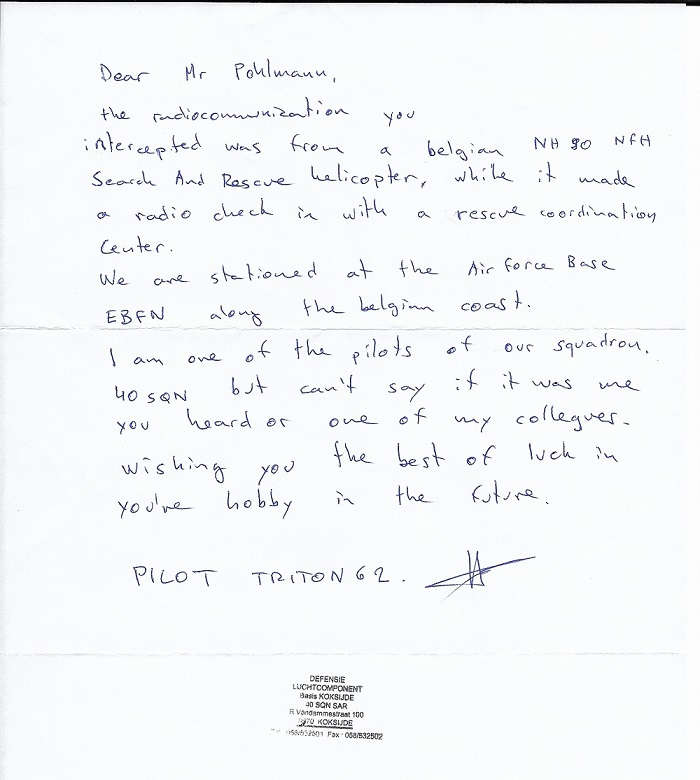 Dear Mr Pohlmann,
the radiocommunization you
intercepted was from a belgian NH90 NFH
Search And Rescue helicopter, while it made
a radio check in with a rescue coordination
Center.
We are stationed at the Air Force Base
EBFN along the belgian coast.
I am one of the pilots of our squadron,
40 SQN but can't say if it was me
you heard or one of my collegues.
Wishing you the best of luck in
you're hobby in the future.
PILOT TRITON 62.
DEFENSIE
LUCHTCOMPONENT
Basis KOKSIJDE
40 SQN SAR
R Vandammestraat 100
KOKSIJDE
Fax : 058/532502